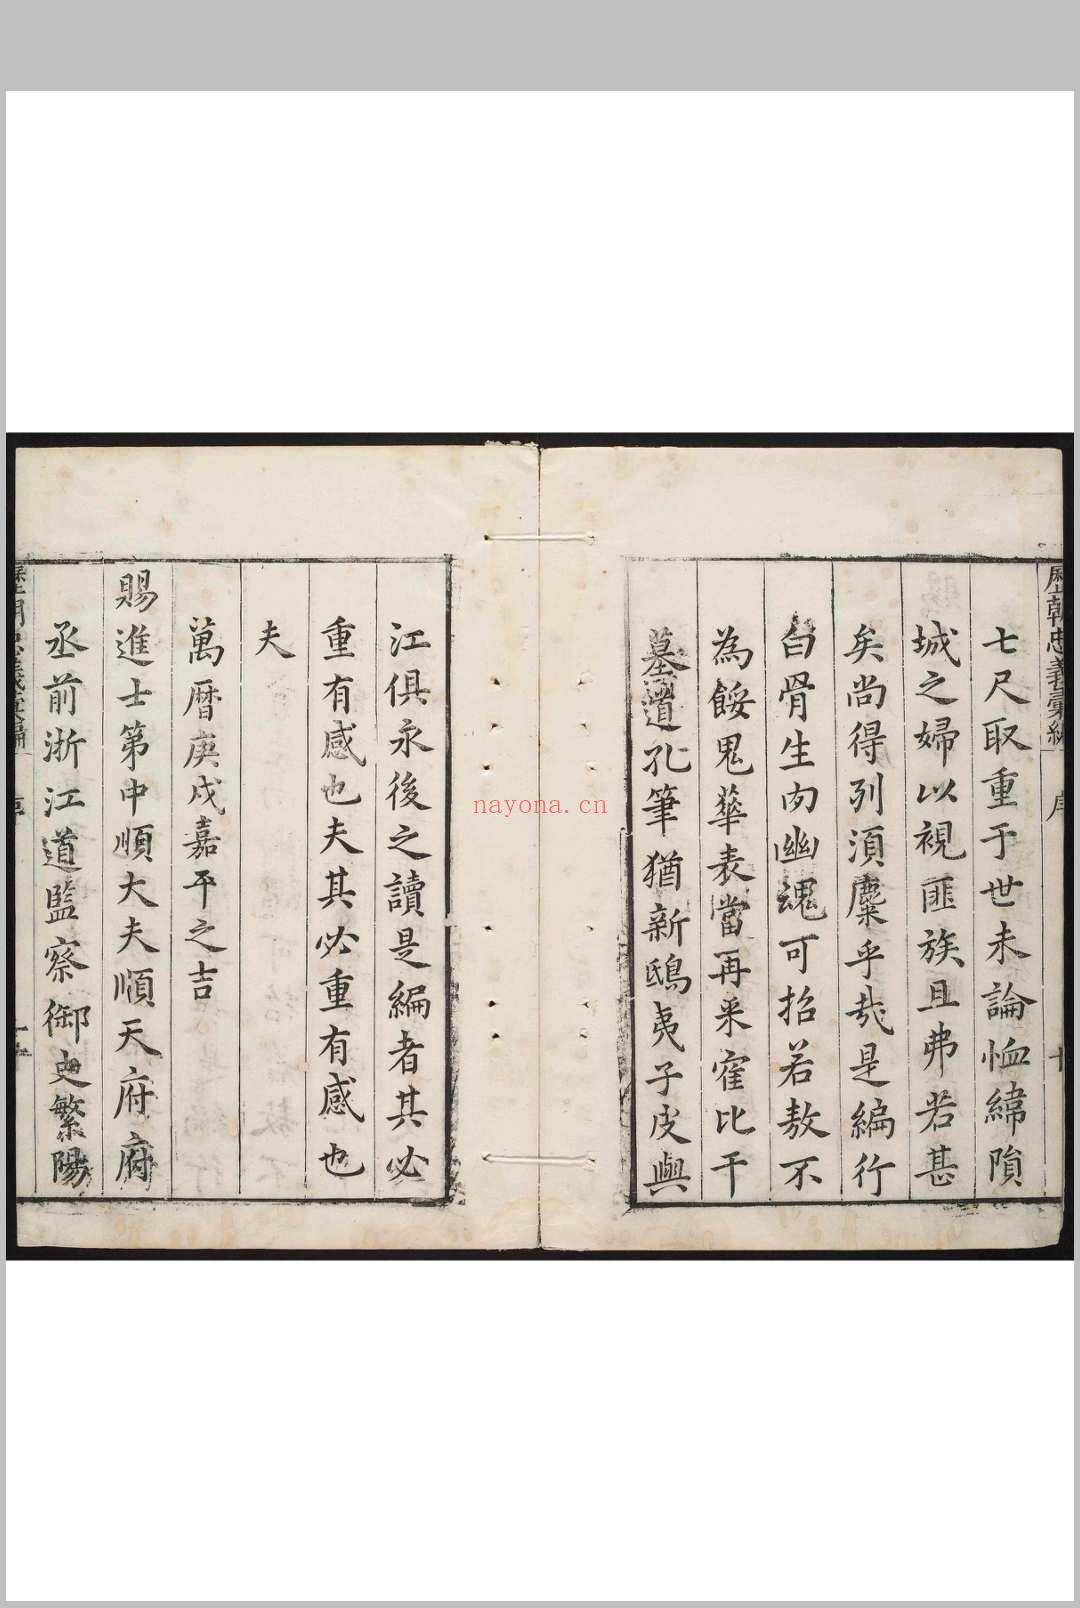 歷朝忠義彙編
序
七尺取重于世未論恤緯隕
城之婦以視匪族且弗若甚
矣尚得列須麋乎哉是編行
白骨生肉幽魂可招若敖不
為餒鬼華表當再來寉比干
墓道孔筆猶新鴟夷子皮與
江俱永後之讀是編者其必
重有感也夫其必重有感也
夫
萬曆庚戌嘉平之吉
賜進士第中順大夫順天府府
丞前浙江道監察御史繁陽
nayona.cn